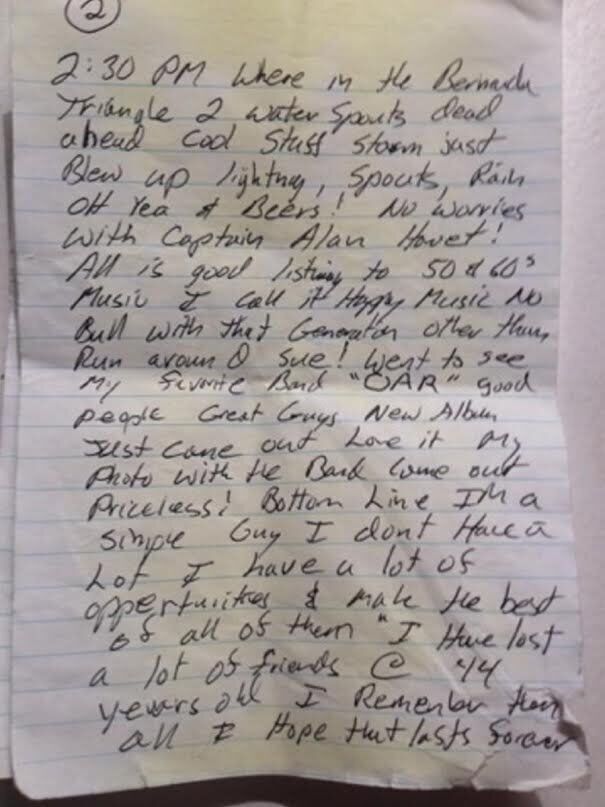 2
2:30 PM Where in the Bermuda
Triangle 2 water Spouts dead
ahead Cool Stuff Storm just
Blew up lightning, Spouts, Rain
OH Yea & Beers! No worries
With Captain Alan
All is good listing to 50 & 60s
Music I call it Happy Music No
Bull with that Generation other than
Run around Sue! Went to see
My Favorite Band "OAR" good
people Great Guys New Album
Just came out Love it My
Photo with the Band Came out
Priceless! Bottom Line IM a
Simple Guy I dont Have a
Lot I have a lot of
oppertunities & make the best
of all of them "I Have lost
a lot of friends @ 44
years old I Remember them
all I Hope that lasts Forever